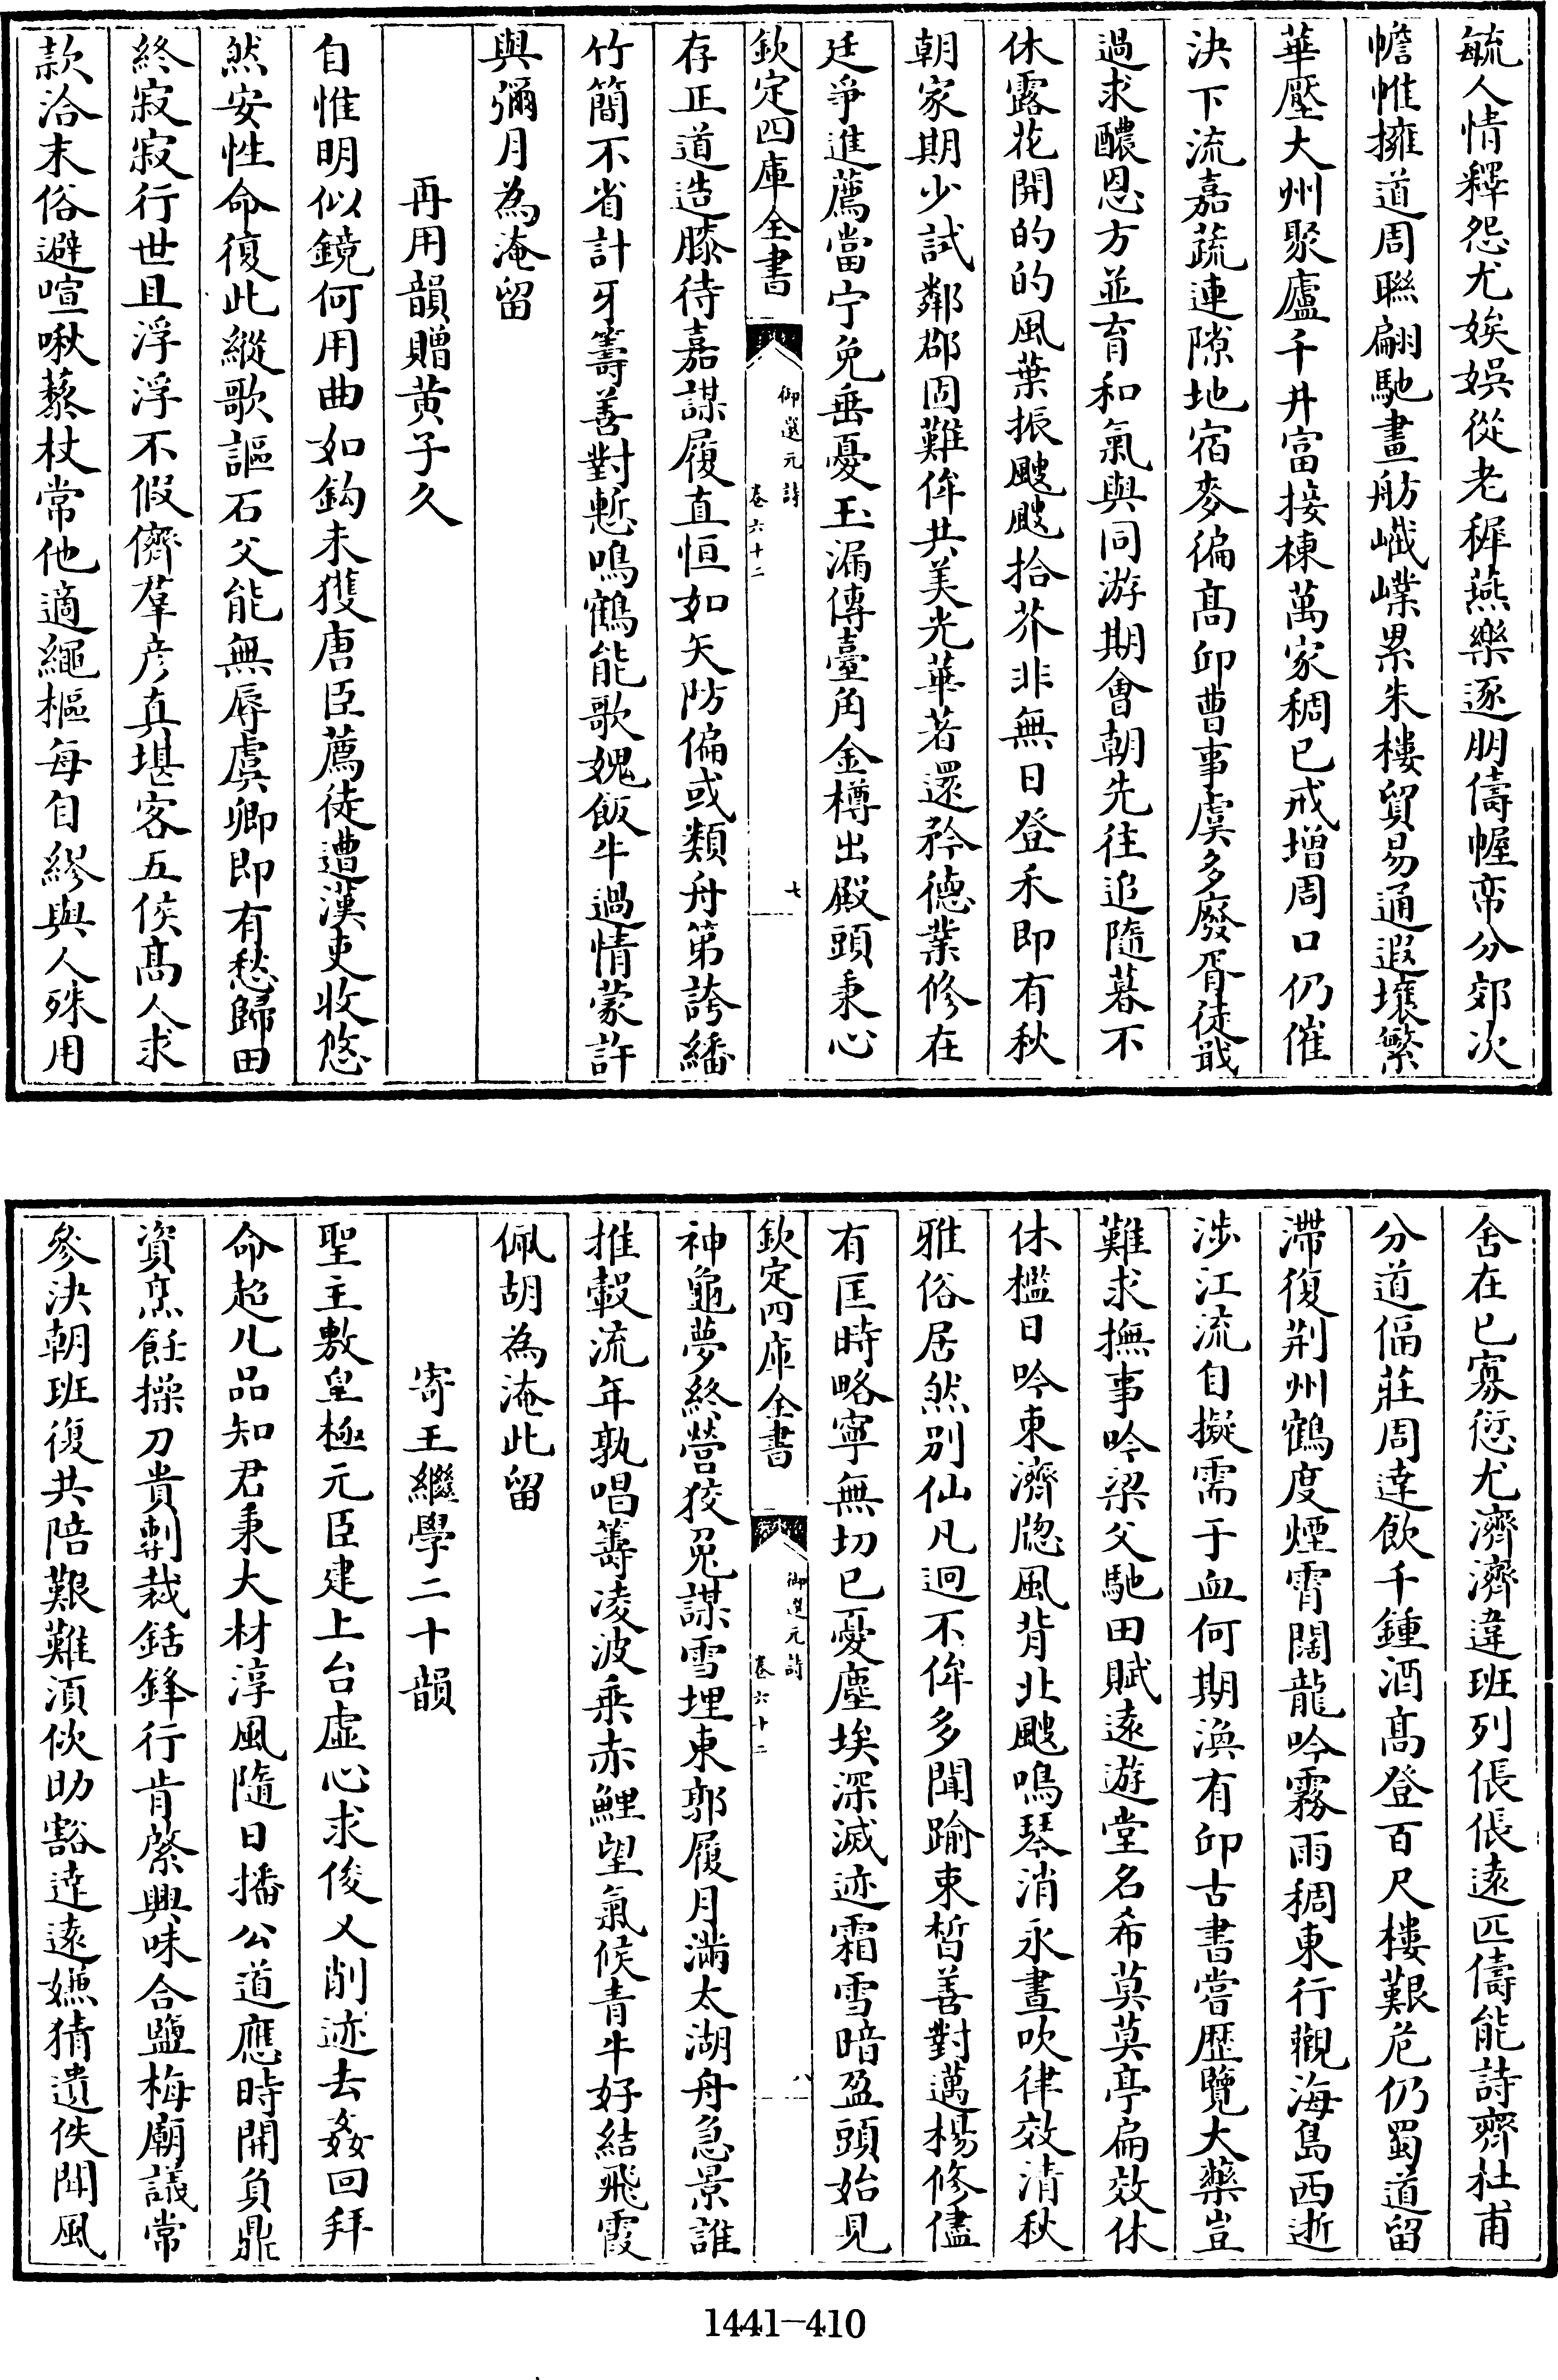 毓人情釋怨尤娭娯從老穉燕樂逐朋儔幄帟分郊次
幨帷擁道周聯翩馳畫舫嶻嶫累朱樓貿易通遐壤繁
華壓大州聚廬千井富接棟萬家稠已戒增周口仍催
決下流嘉蔬連隙地宿麥徧髙卭曹事虞多廢胥徒戢
過求醲恩方並育和氣與同游期會朝先往追隨暮不
休露花開的的風葉振颼颼拾芥非無日登禾即有秋
朝家期少試鄰郡固難侔共美光華著還矜德業修在
廷爭進薦當宁免垂憂玉漏傳臺角金樽出殿頭秉心
欽定四庫全書
御選元詩
卷六十二
七
存正道造膝待嘉謀履直恒如矢防偏或類舟第誇繙
竹簡不省計牙籌善對慙鳴鶴能歌媿飯牛過情蒙許
與彌月為淹留
再用韻贈黄子久
自惟明似鏡何用曲如鈎未獲唐臣薦徒遭漢吏收悠
然安性命復此縱歌謳石父能無辱虞卿即有愁歸田
終寂寂行世且浮浮不假儕羣彦真堪客五侯髙人求
款洽末俗避喧啾藜杖常他適繩樞每自繆與人殊用
舍在已寡愆尤濟濟違班列倀倀遠匹儔能詩齊杜甫
分道偪莊周達飲千鍾酒髙登百尺樓艱危仍蜀道留
滯復荆州鶴度煙霄闊龍吟霧雨稠東行觀海島西逝
涉江流自擬需于血何期渙有卭古書嘗歷覽大藥豈
難求撫事吟梁父馳田賦逺遊堂名希莫莫亭扁效休
休檻日吟東濟牎風背北颼鳴琴消永晝吹律效清秋
雅俗居然别仙凡迥不侔多聞踰束晳善對邁楊修儘
有匡時略寧無切已憂塵埃深滅迹霜雪暗盈頭始見
欽定四庫全書
御選元詩
卷六十二
八
神龜夢終營狡兎謀雪埋東郭履月滿太湖舟急景誰
推轂流年孰唱籌凌波乗赤鯉望氣候青牛好結飛霞
佩胡為淹此留
寄王繼學二十韻
聖主敷皇極元臣建上台虛心求俊乂削迹去姦回拜
命超凡品知君秉大材淳風隨日播公道應時開負鼎
資烹飪操刀貴剸裁銛鋒行肯綮興味合鹽梅廟議常
參決朝班復共陪艱難湏佽助豁達遠嫌猜遺佚聞風
1441-410